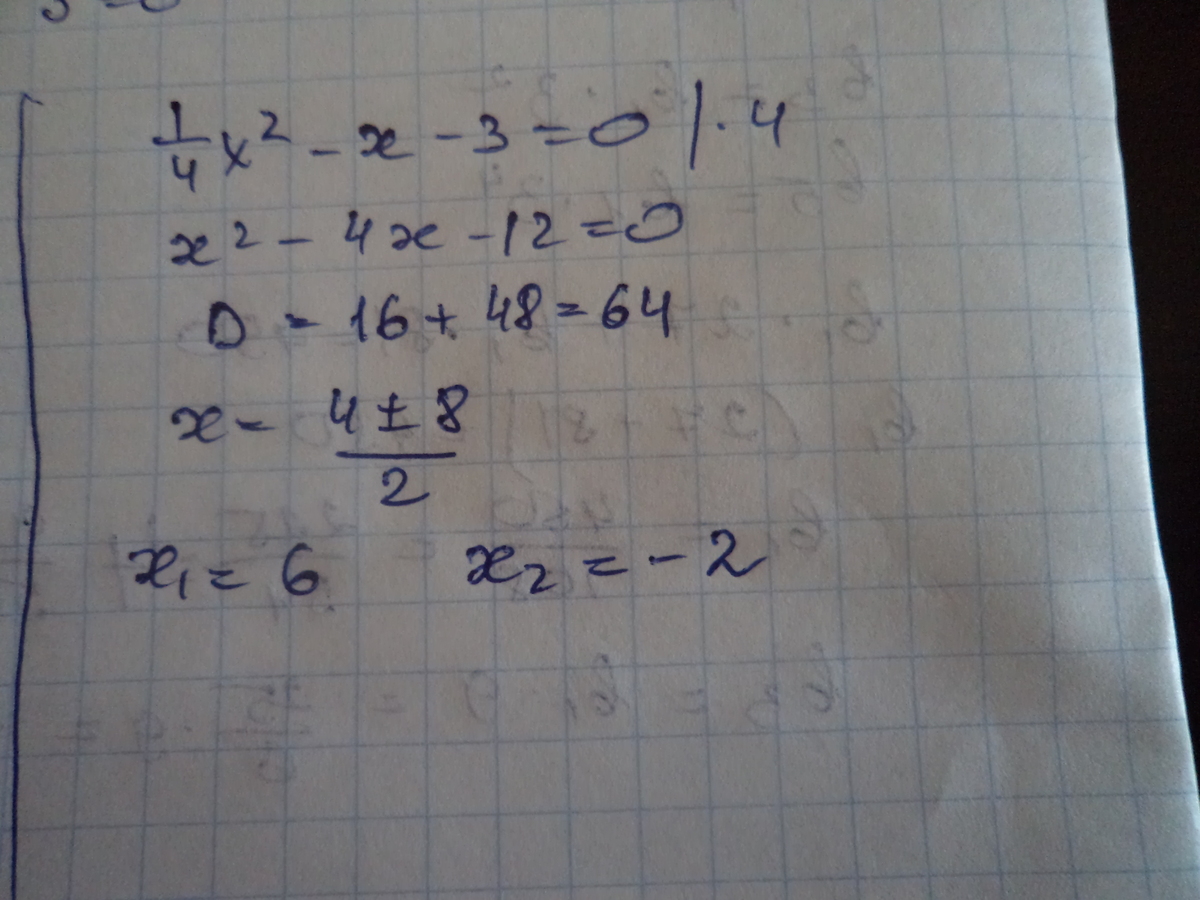 1/4 x² - x - 3 = 0 | · 4
x² - 4x - 12 = 0
D = 16 + 48 = 64
x = (4 ± 8)/2
x₁ = 6 x₂ = - 2